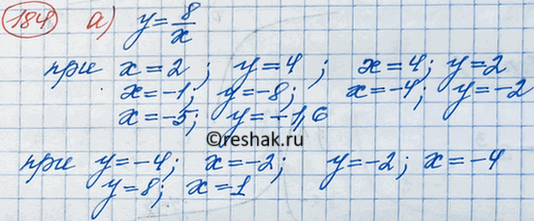 184 а) y = 8/x
при x = 2; y = 4; x = 4; y = 2
x = -1; y = -8; x = -4; y = -2
x = -5; y = -1,6
©reshak.ru
при y = -4; x = -2; y = -2; x = -4
y = 8; x = 1